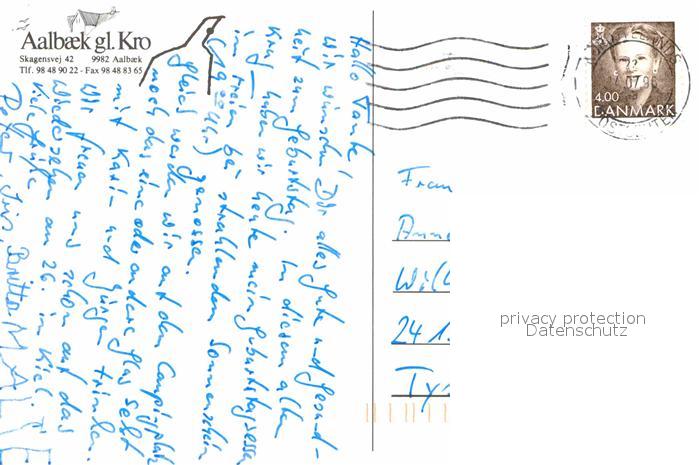 Aalbæk gl. Kro
Skagensvej 42 9982 Aalbæk
Tlf. 98 48 90 22 - Fax 98 48 83 65
Hallo Tante
wir wünschen Dir alles Gute und Gesund-
heit zum Geburtstag. In diesem alten
Krug haben wir heute mein Geburtstagsessen
im Freien bei strahlendem Sonnenschein
genossen.
Gleich werden wir auf dem Campingplatz
noch das eine oder andere Glas Sekt
mit Karin und Jürgen trinken.
Wir freuen uns schon auf das
Wiedersehen am 26. in Kiel
Viele Grüße
Detlef, Iris, Britta
MALTE
4.00
DANMARK
Frau
24 1
privacy protection
Datenschutz